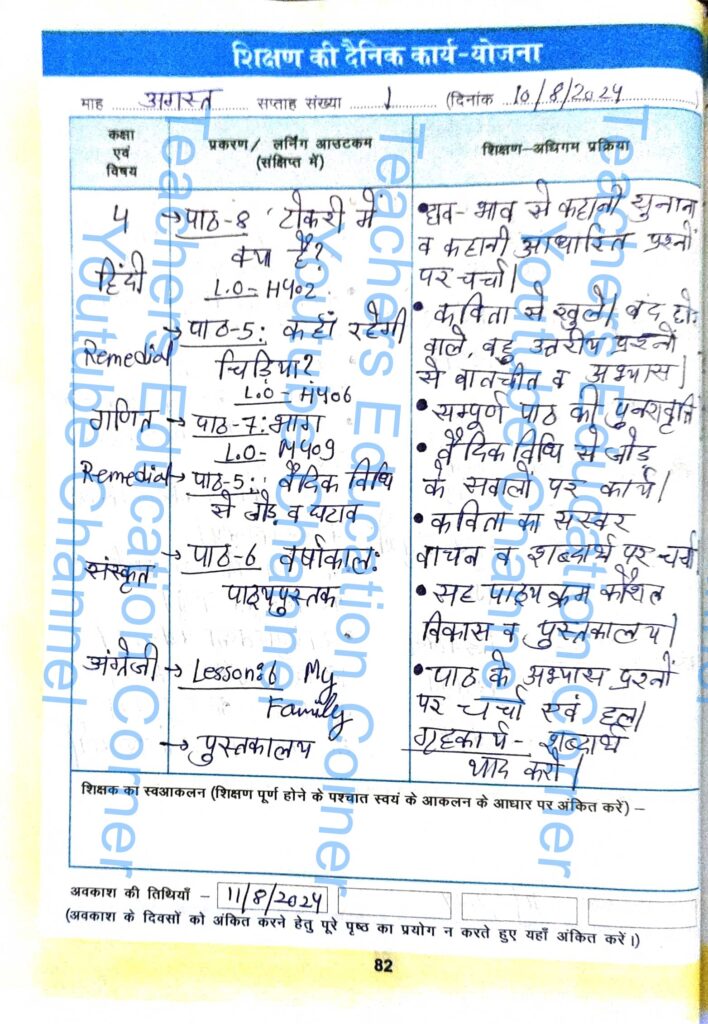 शिक्षण की दैनिक कार्य-योजना
माह अगस्त सप्ताह संख्या 1 (दिनांक 10/8/2024
कक्षा एवं विषय
प्रकरण/ लर्निंग आउटकम (संक्षिप्त में)
शिक्षण-अधिगम प्रक्रिया
4
हिंदी
→ पाठ-8 'टोकरी में
क्या है?
L.O- H402
Remedial
→ पाठ-5: कहाँ रहेगी
चिड़िया?
L.O- H406
गणित → पाठ-7: भाग
L.O- M409
Remedial → पाठ-5: वैदिक विधि
से जोड़ व घटाव
संस्कृत
→ पाठ-6 वर्षाकाल:
पाठ्यपुस्तक
अंग्रेजी → Lesson:6 My
Family
→ पुस्तकालय
• हाव-भाव से कहानी सुनाना
व कहानी आधारित प्रश्नों
पर चर्चा।
• कविता से खुले। बंद
वाले, बहु उत्तरीय प्रश्नों
से बातचीत व अभ्यास।
• सम्पूर्ण पाठ की पुनरावृत्ति
• वैदिक विधि से जोड़
के सवालों पर कार्य।
• कविता का सस्वर
वाचन व शब्दार्थ पर चर्चा
• सह पाठ्य क्रम कौशल
विकास व पुस्तकालय।
• पाठ के अभ्यास प्रश्नों
पर चर्चा एवं हल।
गृहकार्य - शब्दार्थ
याद करो।
शिक्षक का स्वआकलन (शिक्षण पूर्ण होने के पश्चात स्वयं के आकलन के आधार पर अंकित करें) –
अवकाश की तिथियाँ – 11/8/2024
(अवकाश के दिवसों को अंकित करने हेतु पूरे पृष्ठ का प्रयोग न करते हुए यहाँ अंकित करें।)
82
Teachers Education Corner
Youtube Channel
Teachers Education Corner
Youtube Channel
Teachers Education Corner
Youtube Channel